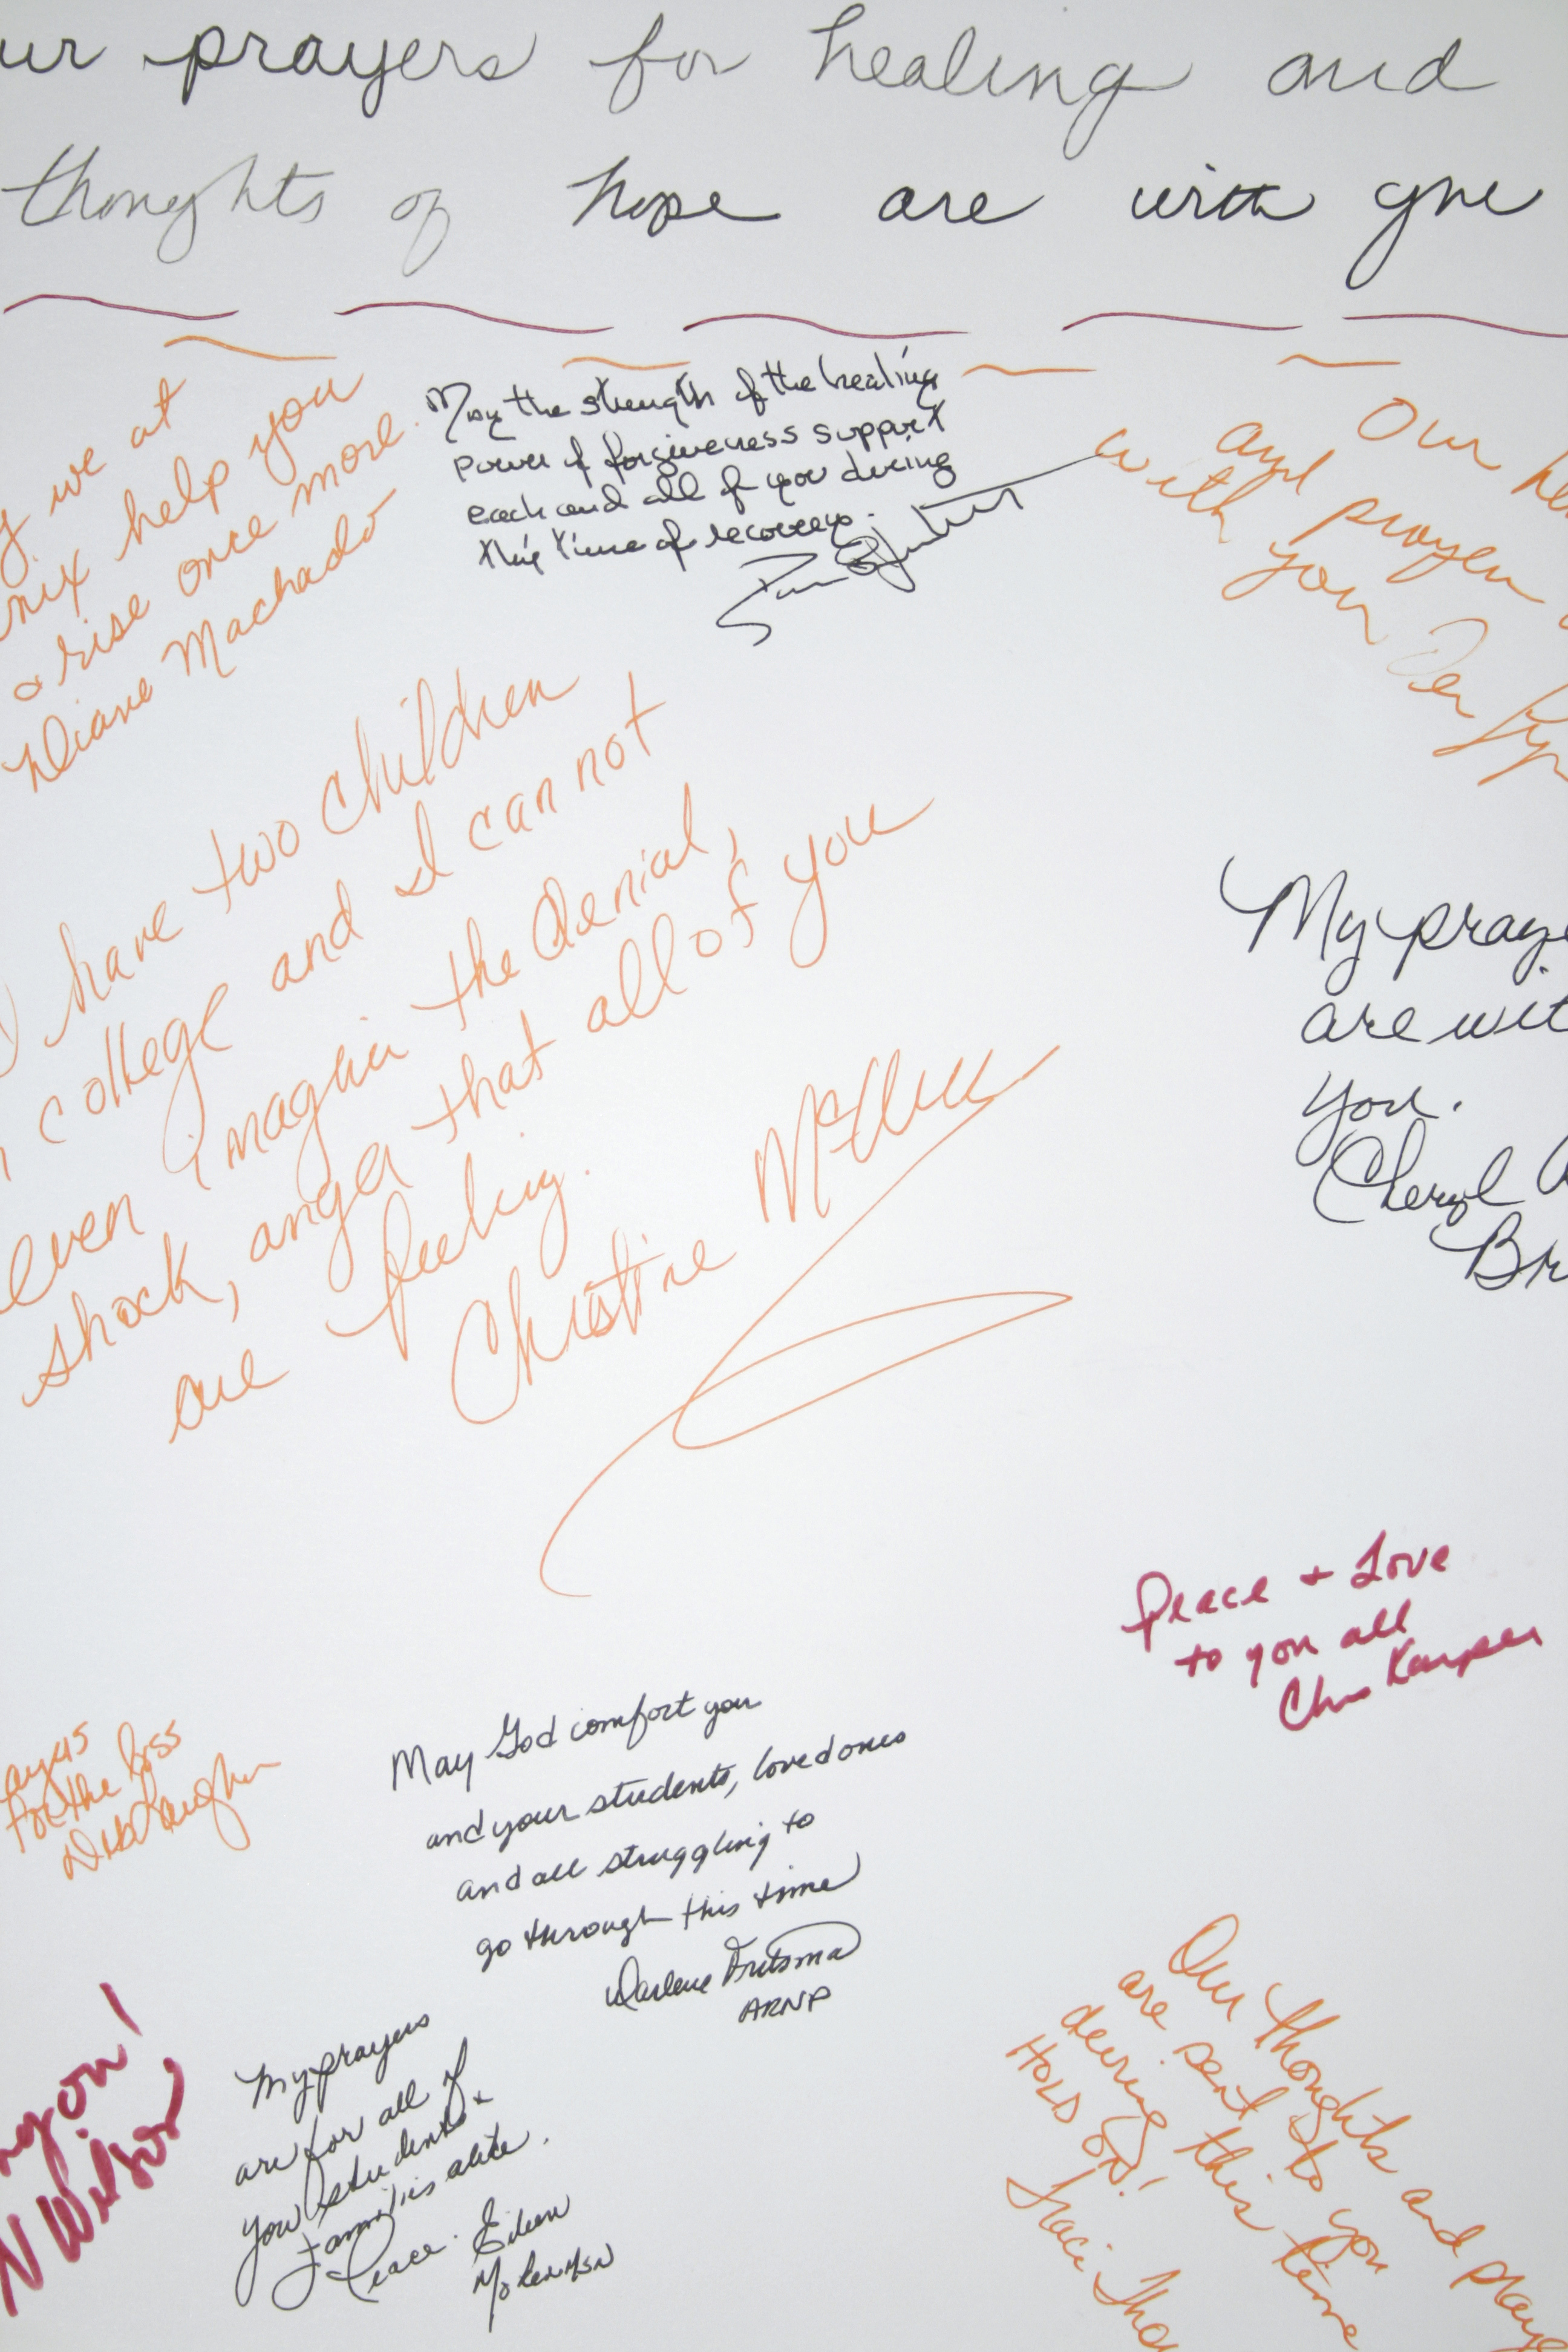 ur prayers for healing and
thoughts of hope are with you
we at
nix help you
& rise once more.
Diane Machado
May the strength of the healing
power of forgiveness support
each and all of you during
this time of recovery.
Our
and prayers
with you
I have two children
college and I can not
even imagin the denial,
shock, anger that all of you
are feeling.
Christine
My praye
are wit
you.
Cheryl
Br
Peace + Love
to you all
Chris Karper
ayers
for the loss
May God comfort you
and your students, loved ones
and all struggling to
go through this time
Darlene
ARNP
ng on!
N Wilson
My prayers
are for all of
you students &
families alike.
Peace. Eileen
MSN
Our thoughts and praye
are sent to you
during this time
HOLD ON!
Traci Tho